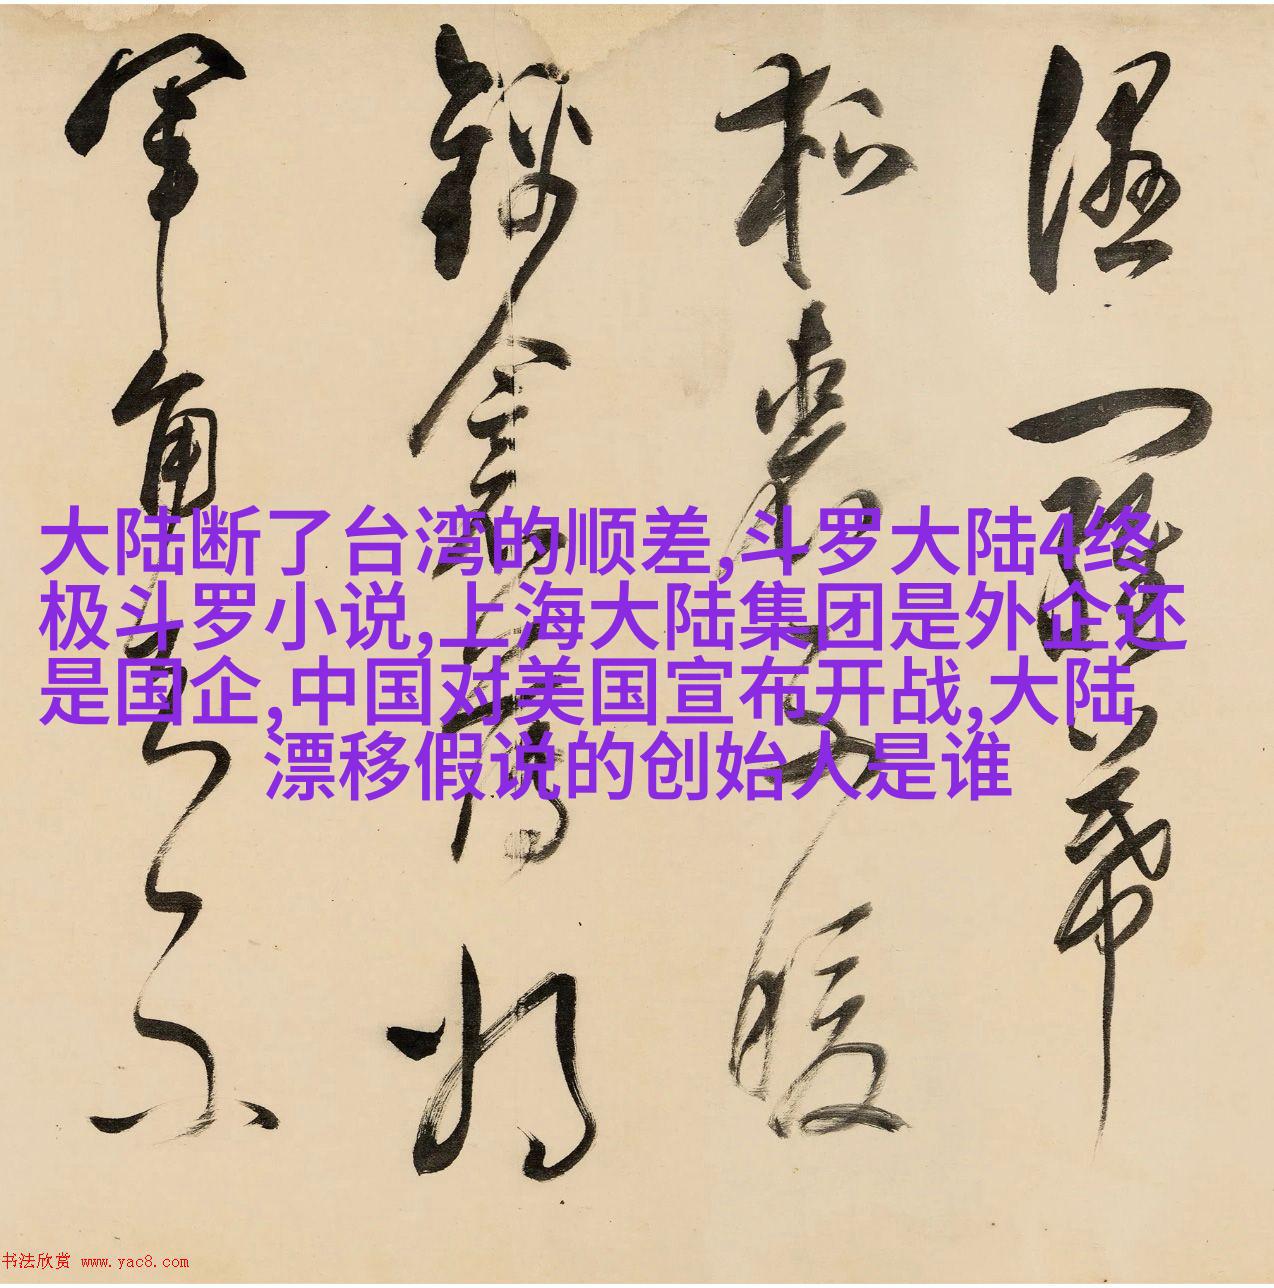 濕羅幕
狐裘不暖
錦衾薄將
軍角弓不
大陆断了台湾的顺差,斗罗大陆4终
极斗罗小说,上海大陆集团是外企还
是国企,中国对美国宣布开战,大陆
漂移假说的创始人是谁
书法欣赏 www.yac8.com